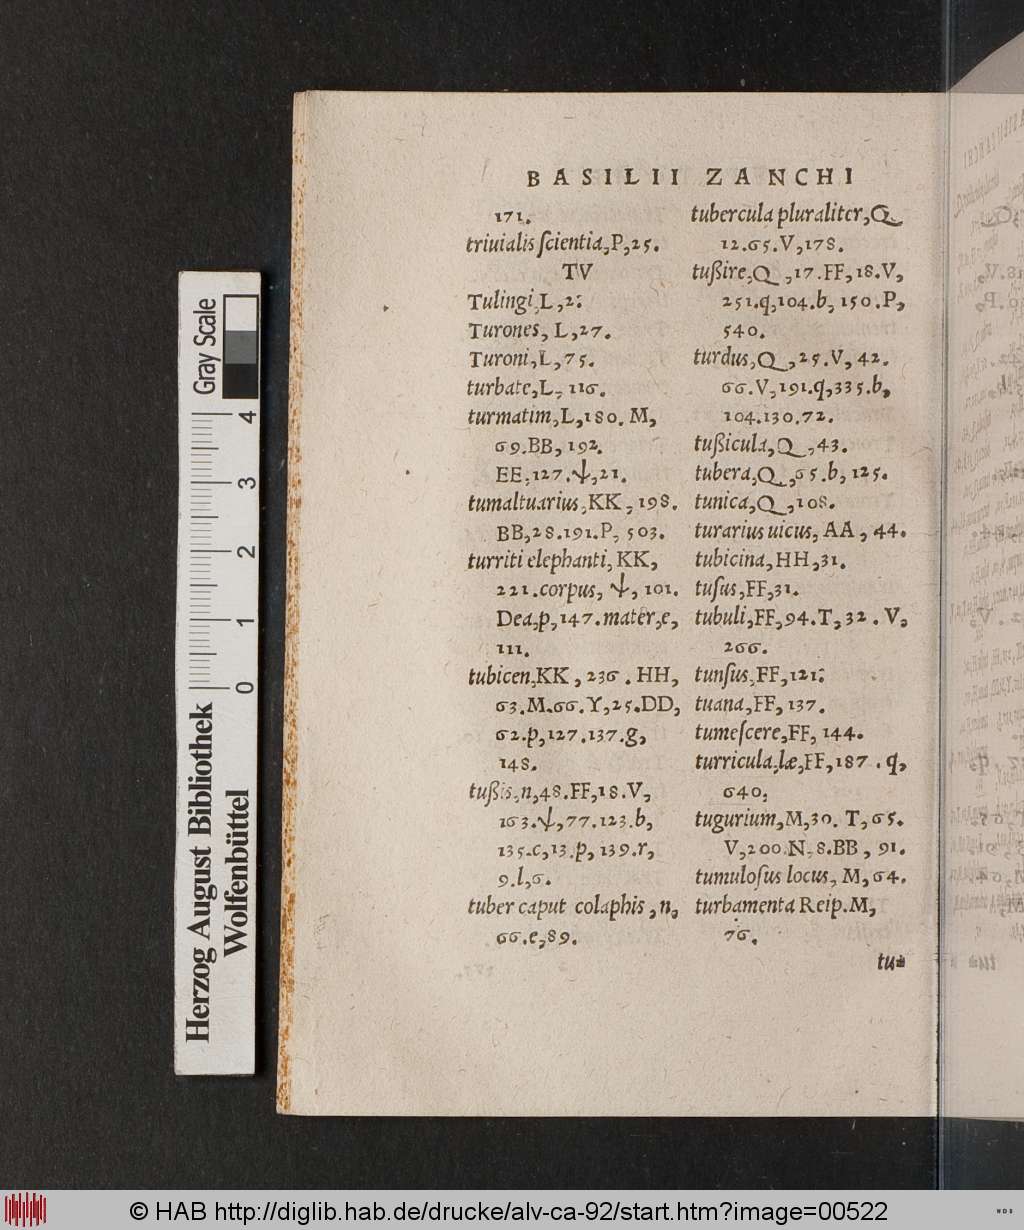 BASILII ZANCHI
171.
triuialis ſcientia,P,25.
TV
Tulingi,L,2:
Turones, L,27.
Turoni,L,75.
turbate,L, 116.
turmatim,L,180. M,
69.BB, 192.
EE,127.ψ,21.
tumaltuarius,KK, 198.
BB,28.191.P, 503.
turriti elephanti, KK,
221.corpus, ψ, 101.
Dea,p,147.mater,e,
111.
tubicen,KK, 236. HH,
63.M.66.Y,25.DD,
62.p,127.137.g,
148.
tußis,n,48.FF,18.V,
163.ψ,77.123.b,
135.c,13.p, 139.r,
9.l,6.
tuber caput colaphis ,n,
66.e,89.
tubercula pluraliter,Q
12.65.V,178.
tußire,Q ,17.FF,18.V,
251.q,104.b, 150.P,
540.
turdus,Q ,25.V, 42.
66.V,191.q,335.b,
104.130.72.
tußicula,Q ,43.
tubera,Q ,65.b, 125.
tunica,Q ,108.
turarius uicus, AA, 44.
tubicina,HH,31.
tuſus,FF,31.
tubuli,FF,94.T,32. V,
266.
tunſus,FF,121:
tuana,FF, 137.
tumeſcere,FF, 144.
turricula,læ,FF,187. q,
640,
tugurium,M,30. T,65.
V,200.N,8.BB, 91.
tumuloſus locus, M,64.
turbamenta Reip.M,
76.
tu=
Gray Scale
4
3
2
1
0
Herzog August Bibliothek
Wolfenbüttel
© HAB http://diglib.hab.de/drucke/alv-ca-92/start.htm?image=00522
W D B